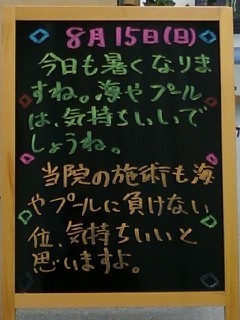 8月15日(日)
今日も暑くなりま
すね。海やプール
は、気持ちいいで
しょうね。
当院の施術も海
やプールに負けない
位、気持ちいいと
思いますよ。